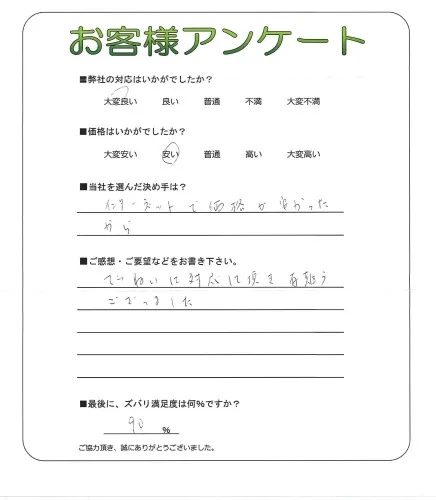 お客様アンケート
■弊社の対応はいかがでしたか?
大変良い 良い 普通 不満 大変不満
■価格はいかがでしたか?
大変安い 安い 普通 高い 大変高い
■当社を選んだ決め手は?
インターネットで価格が安かった
から
■ご感想・ご要望などをお書き下さい。
ていねいに対応して頂き有難う
ございました
■最後に、ズバリ満足度は何%ですか?
90 %
ご協力頂き、誠にありがとうございました。